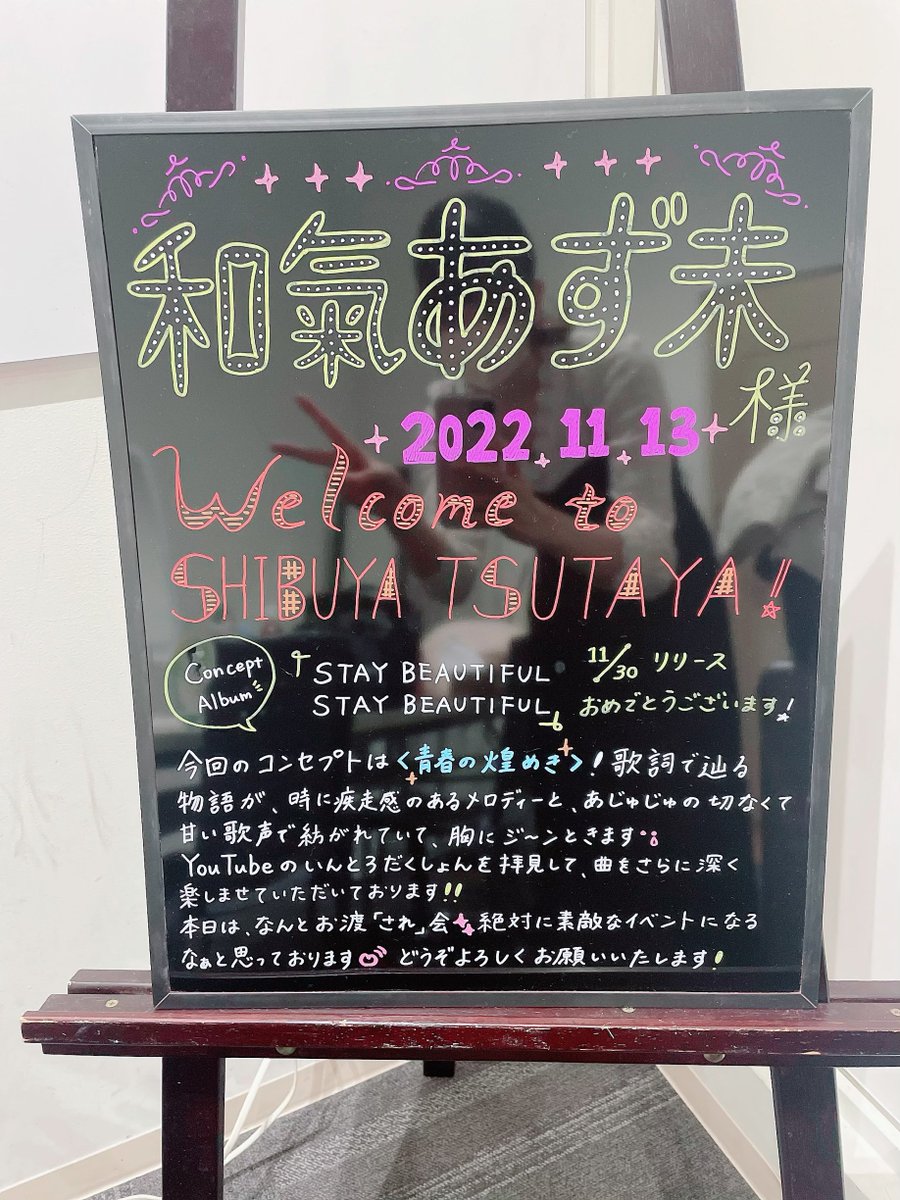 和氣あず未
様
2022.11.13
Welcome to
SHIBUYA TSUTAYA!!
Concept
Album
「STAY BEAUTIFUL
STAY BEAUTIFUL」
11/30 リリース
おめでとうございます!
今回のコンセプトは<青春の煌めき>!歌詞で辿る
物語が、時に疾走感のあるメロディーと、あじゅじゅの切なくて
甘い歌声で紡がれていて、胸にジ〜ンときます
YouTubeのいんとろだくしょんを拝見して、曲をさらに深く
楽しませていただいております!!
本日は、なんとお渡「され」会 絶対に素敵なイベントになる
なぁと思っております どうぞよろしくお願いいたします!